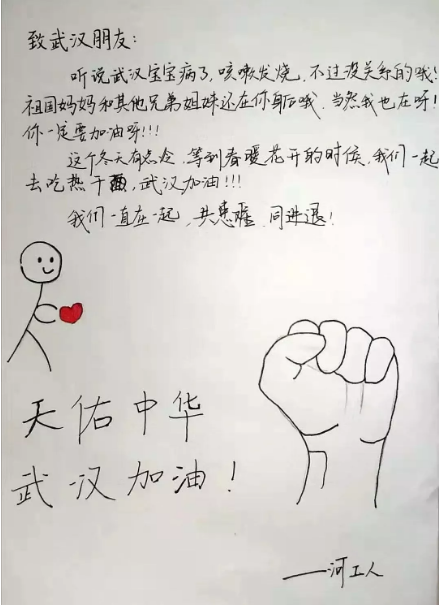 致武汉朋友：
听说武汉宝宝病了，咳嗽发烧，不过没关系的哦！
祖国妈妈和其他兄弟姐妹还在你身后哦，当然我也在呀！
你一定要加油呀！！！
这个冬天有点冷，等到春暖花开的时候，我们一起
去吃热干面，武汉加油！！！
我们一直在一起，共患难，同进退！
天佑中华
武汉加油！
——河工人